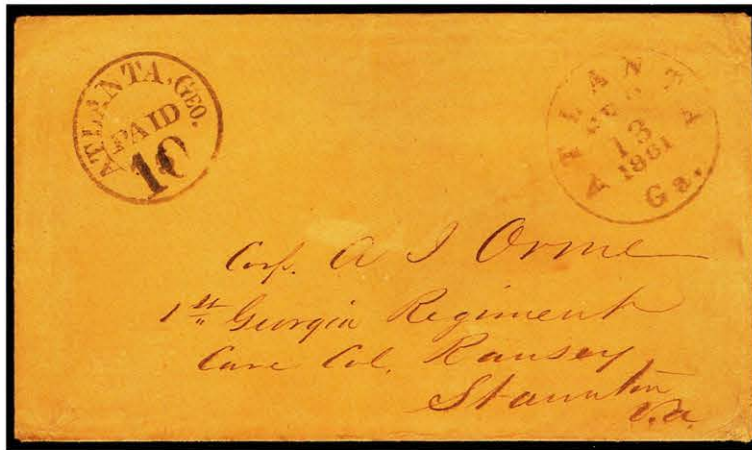 ATLANTA, GEO.
PAID
10
ATLANTA
13
1861
Ga.
Corp. A J Orme
1st Georgia Regiment
Care Col. Ramsey
Staunton
Va.